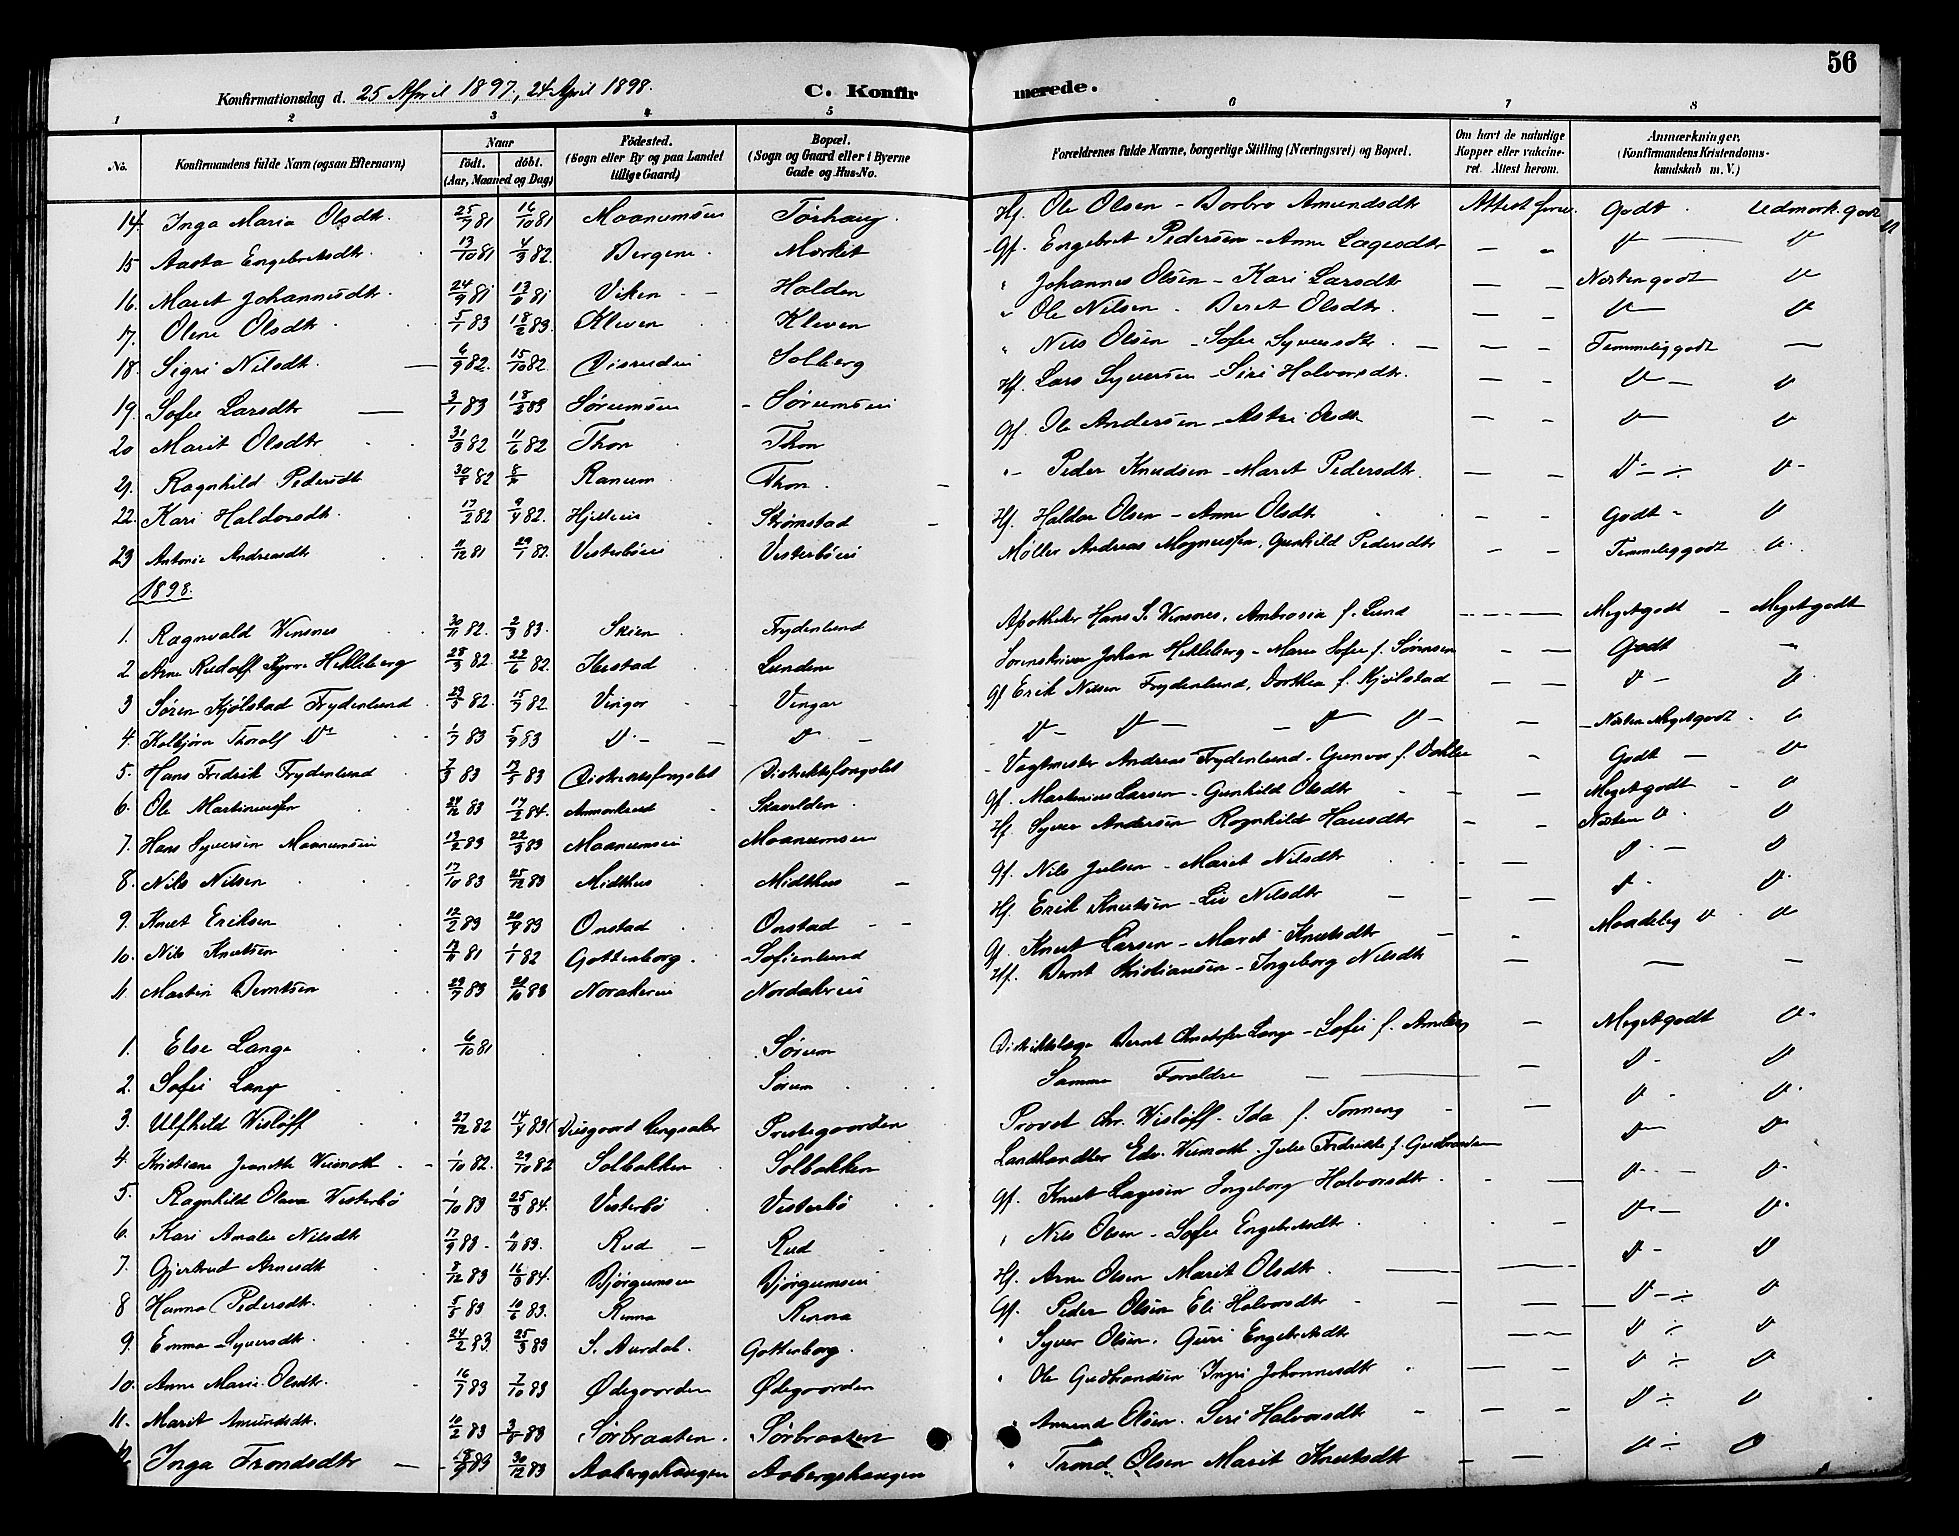 56
Konfirmationsdag d. 25 April 1897, 24 April 1898. C. Konfir merede.
1 2 3 4 5 6 7 8
No. Konfirmandens fulde Navn (ogsaa Efternavn) Naar födt. döbt. (Aar, Maaned og Dag) Födested. (Sogn eller By og paa Landet tillige Gaard) Bopæl. (Sogn og Gaard eller i Byerne Gade og Hus-No. Forældrenes fulde Navne, borgerlige Stilling (Næringsvei) og Bopæl. Om havt de naturlige Kopper eller vakcineret. Attest herom. Anmærkninger. (Konfirmandens Kristendomskundskab m. V.)
14. Inga Maria Olsdt. 25/7 81 16/10 81 Maanumseie Torhaug. Hf. Ole Olsen - Barbro Amundsdtr Attest Godt. Udmerk. godt
15 Aasta Engebretsdtr. 13/10 81 4/3 82. Bergene. Morket Gf. Engebret Pedersen - Anne Lagesdtr — - V — V
16. Marit Johannesdtr. 24/9 81 Viken - Halden " Johannes Olsen - Kari Larsdtr — — Næsten godt V
17. Olene Olsdtr 5/1 83 18/2 83. Kleven Kleven " Ole Nilsen - Beret Olsdtr. — - V — V
18. Sigri Nilsdtr. — 6/9 82. 15/10 82. Solberg " Nils Olsen - Sofie Syversdtr. — — - Temmelig godt —
19. Sofie Larsdtr — 3/1 83 18/3 83 Sørumseie - Sørumseie Hf. Lars Syversen - Siri Halvorsdtr. — - V — V
20 Marit Olsdtr 31/3 82 11/6 82 Thon Thon Gf. Ole Andersen - Astri Olsdtr — - V — V
21. Ragnhild Pedersdtr Ranum Thon. " - Peder Knudsen - Marit Pedersdtr. — - V - ÷ V -
22. Kari Haldorsdtr. 17/2 82 9/4 82. Strømstad Hf. Haldor Olsen - Anne Olsdtr - - Godt - V
23 Antonie Andreasdtr 11/12 81 29/1 82. Vesterbøeie Vesterbøeie Møller Andreas Magnussen, Gunhild Pedersdtr — - Temmelig godt V.
1898.
1. Ragnvald Wensnes 30/11 82. 2/3 83. Skien Frydenlund Apotheker Hans S. Wensnes, Ambrosia f. Lund — Meget godt - Meget godt
2 Arne Rudolf Hekleberg 28/3 82. 22/6 82. Lundene Sorenskriver Johan Hekleberg - Marie Sofie f. Sørensen - — Godt "
3 Sören Kjølstad Frydenlund 15/9 82 Vingar - Vingar Gf Erik Nilsen Frydenlund, Dorthea f. Kjølstad — — V - V
4. Kolbjørn Thorolf V 1/7 83 5/9 83 V - — V - V - V — - V V - — - Næsten Meget godt. V
5. Hans Fredrik Frydenlund Distriktsfængslet Distriktsfængslet - Vagtmester Andreas Frydenlund - Gunvor f. - Godt — V
6. Ole Martinussen 17/2 84. Gf. Martinius Larsen - Gunhild Olsdtr - — Meget godt - V
7. Hans Syversen Maanumseie 22/3 83 Maanumseie Maanumseie Hf Syver Andersen Ragnhild Hansdtr — - Næsten V. V
8. Nils Nilsen 17/10 83 25/12 83 Midthus Midthus — Gf. Nils Julsen - Marit Nilsdtr - — V. — V
9. Knut Eriksen 12/2 83 Onstad Onstad - - Hf. Erik Knutsen - Liv Nilsdtr — - — V. V.
10. Nils Knutsen 1/1 82 Gottenborg. - Sofienlund Gf. Knut Larsen - Marit Knutsdtr — - Maadelig V. V
11. Martin Berntsen Nordakereie Hf. Bernt Kristiansen - Ingeborg Nilsdtr — — —
1. Else Lange 6/10 81 Sørum Distriktslæge Bernt Christofer Lange - Sofie f. — Meget godt V.
2. Sofie Lange Sörum Samme Forældre — — V - V
3. Ulfhild Wisløff 27/12 82 14/4 83 Prestegaarden Provst Chr. Wisløff - Ida f. — V - V.
4. Kristiane Jeanette 1/10 82. 29/10 82 Solbakken Solbakken Landhandler Edv. - Julie Fredrikke f. Gudbrandsen V — V
5. Ragnhild Olava Vesterbø 1/10 83 25/3 84. Vesterbø Vesterbø Gf. Knut Lagesen Ingeborg Halvorsdtr. - — V - — V.
6. Kari Amalie Nilsdtr 17/9 83 - Rud — Rud " Nils Olsen - Sofie Engebretsdtr. - V — V.
7. Gjertrud Arnesdtr 8/12 83 16/3 84. Bjørgumseie Bjørgumseie Hf. Arne Olsen Marit Olsdtr. — — V - V
8 Hanna Pedersdtr. Renna Renna Gf. Peder Olsen Eli Halvorsdtr - — — V - ÷ V
9. Emma Syversdtr. 24/2 83. 25/3 83 S. Aurdal. Gottenborg. " Syver Olsen. Guri Engebretsdtr — - V ÷ V
10. Anne Marie Olsdtr. 16/7 83 7/10 83 Ødegaarden Ødegaarden " Ole Gudbrandsen Ingri Johannesdtr — — V ÷ V
11. Marit Amundsdtr. 10/2 83 Sørbraaten. Sørbraaten " Amund Olsen. Siri Halvorsdtr - — — V ÷ V
Inga Trondsdtr — 30/12 83 Aabergshaugen Aabergshaugen " Trond Olsen Marit Knutsdtr - — V ÷ V